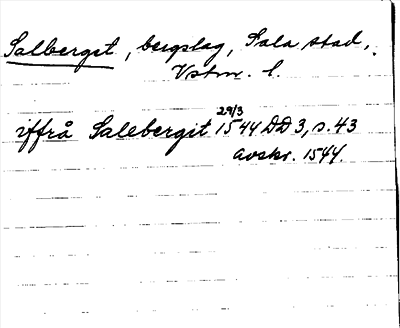 Salberget, bergslag, Sala stad,
Vstm. l.
iffrå Salebergit 29/3 1544 DD 3, s. 43
avskr. 1544.